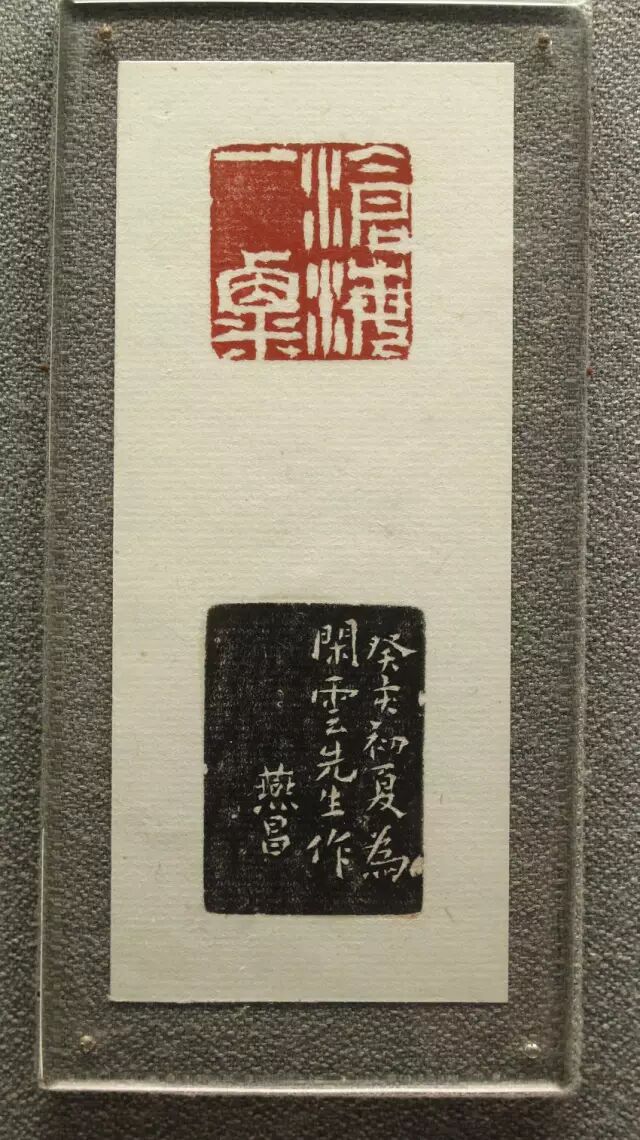 滄海
一粟
癸亥初夏為
閑雲先生作
燕昌